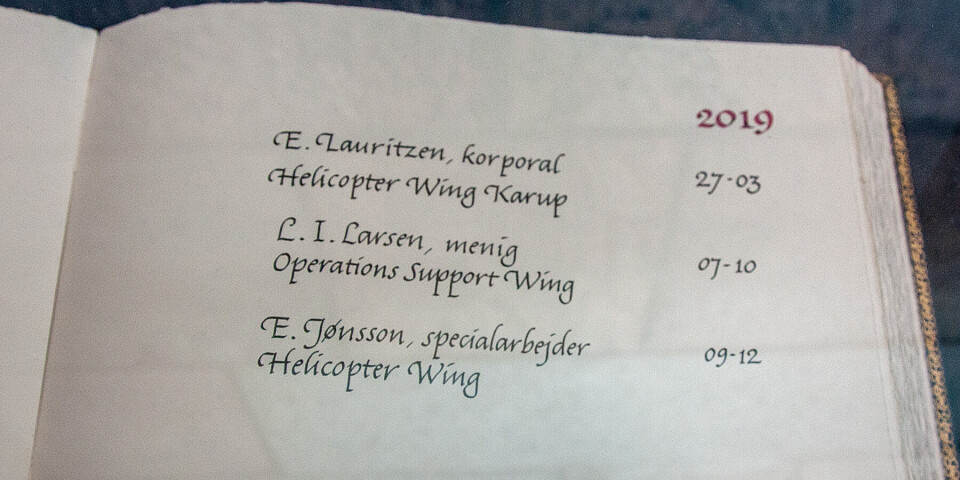 2019
E. Lauritzen, korporal
Helicopter Wing Karup 27-03
L. I. Larsen, menig
Operations Support Wing 07-10
E. Jønsson, specialarbejder
Helicopter Wing 09-12